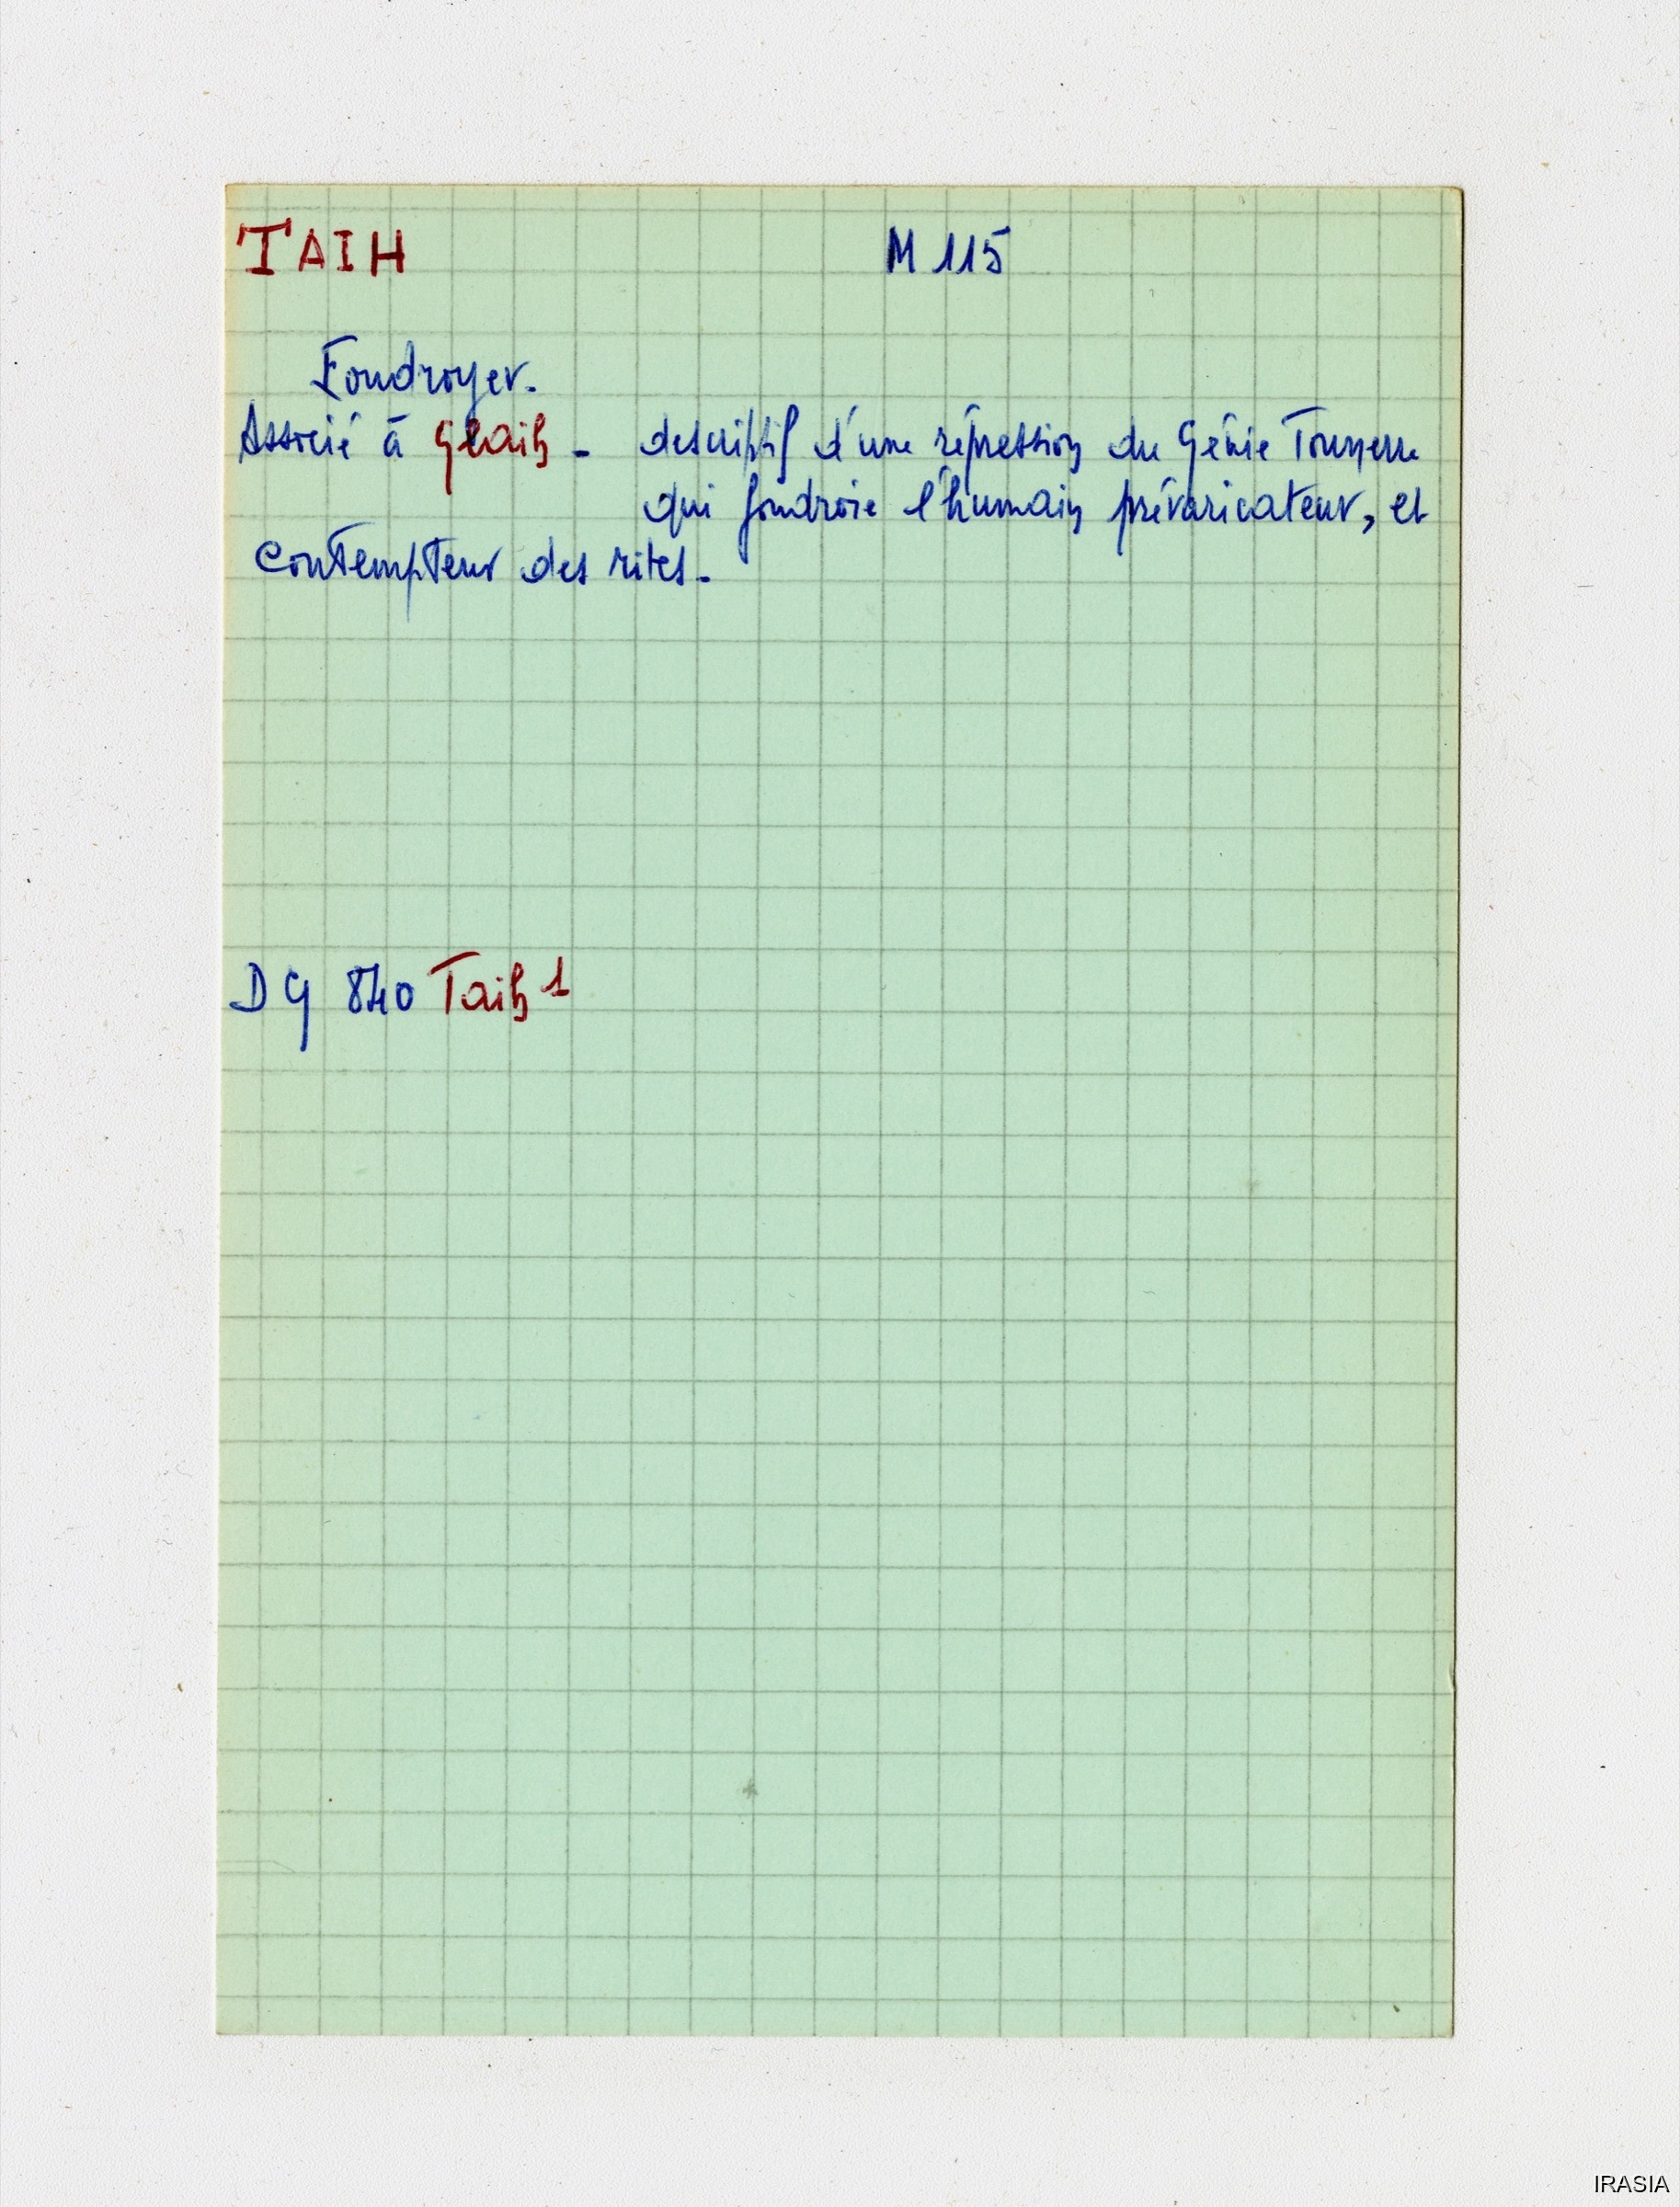 TAIH M 115
Foudroyer.
Associé à glaih - descriptif d'une répression du Génie Tonnerre
qui foudroie l'humain prévaricateur, et
contempteur des rites.
DG 840 Taih 1
IRASIA